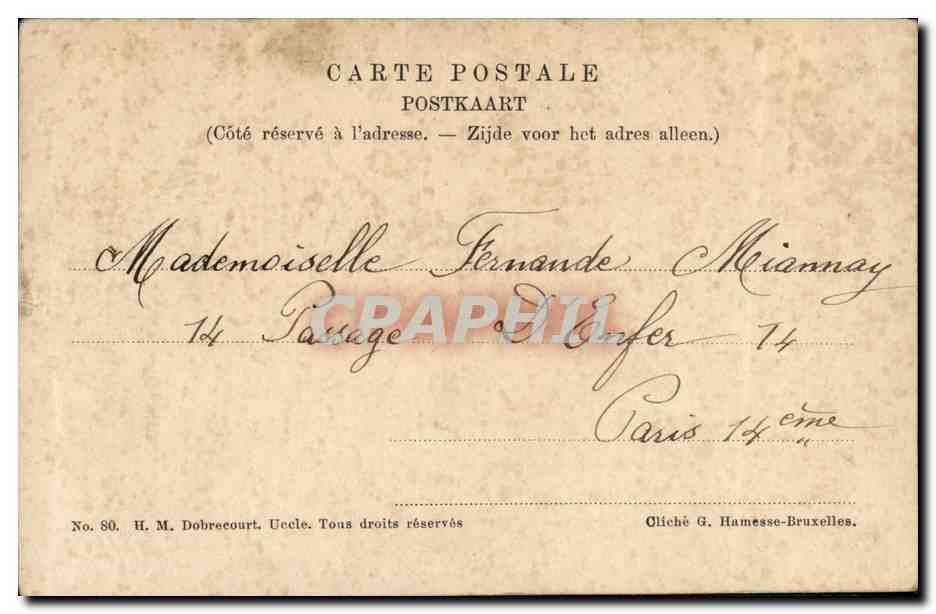 CARTE POSTALE
POSTKAART
(Côté réservé à l'adresse. — Zijde voor het adres alleen.)
Mademoiselle Fernande Miannay
14 Passage D'Enfer 14
CPAPHIL
Paris 14ème
No. 80. H. M. Dobrecourt. Uccle. Tous droits réservés
Cliché G. Hamesse-Bruxelles.